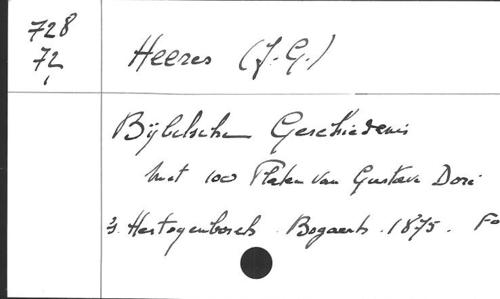 728
72
Heeres (J.-G.)
Bijbelsche Geschiedenis
met 100 Platen van Gustave Doré
's Hertogenbosch. Bogaerts. 1875. Fo